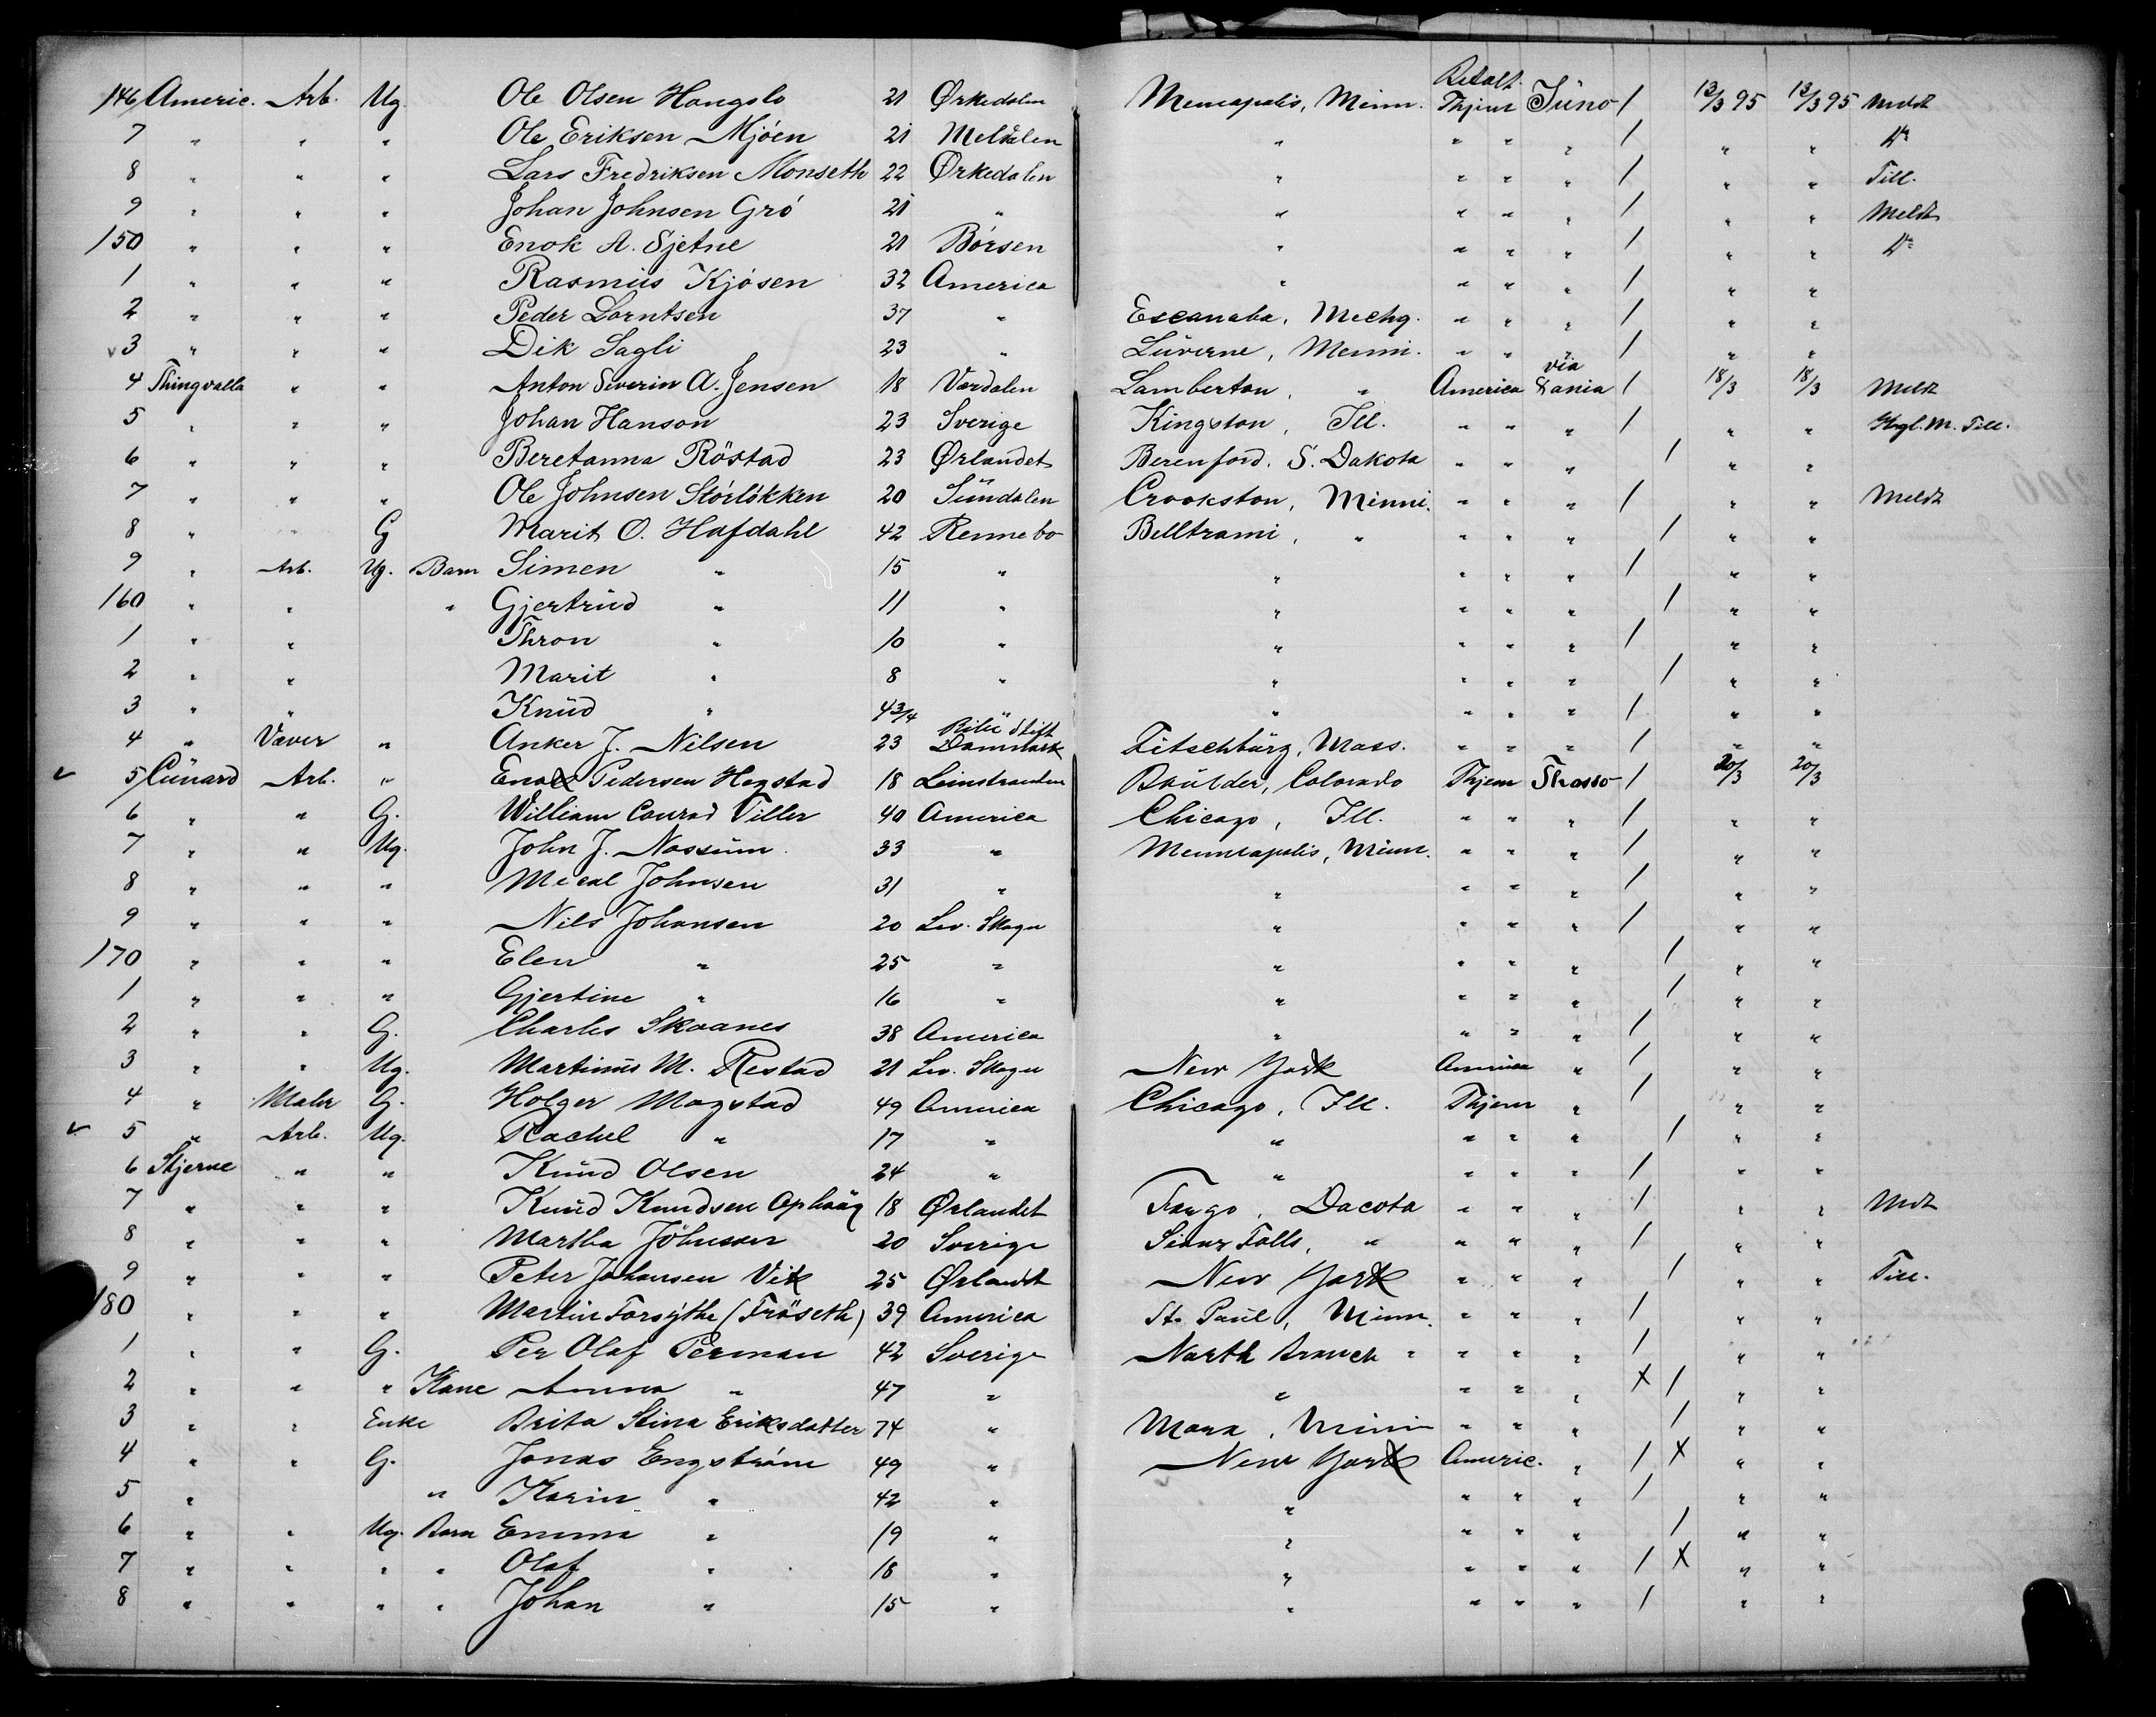 146 Americ. Arb. Ug. Ole Olsen Hongslo 21 Ørkedalen Menneapolis, Minn. Betalt Thjem Juno / 13/3 95 13/3 95 Meldt
7 " " " Ole Eriksen Mjöen 21 Meldalen " " " " / " " Do
8 " " " Lars Fredriksen Monseth 22 Ørkedalen " " " " / " " Till.
9 " " " Johan Johnsen Grö 21 " " " " " / " " Meldt
150 " " " Enok A. Sjetne 21 Börsen " " " " / " " Do
1 " " " Rasmus Kjösen 32 America " " " " / " "
2 " " " Peder Lorntsen 37 " Escanaba, Mechg. " " " / " "
3 " " " Dik Sagli 23 " Luverne, Menni. " " " / " "
4 Thingvalla " " Anton Severin A. Jensen 18 Værdalen Lamberton, " America via Dania / 18/3 18/3 Meldt
5 " " " Johan Hanson 23 Sverige Kingston, Ill. " " " / " " Kgl. M. Till.
6 " " " Beretanna Röstad 23 Ørlandet Berenford. S. Dakota " " " / " "
7 " " " Ole Johnsen Störlökken 20 Sundalen Crookston, Minni. " " " / " " Meldt
8 " " G Marit O. Hafdahl 42 Rennebo Belltrami, " " " " / " "
9 " Arb. Ug. Barn Simen " 15 " " " " " / " "
160 " " " Gjertrud " 11 " " " " " / " "
1 " " Thron " 10 " " " " " / " "
2 " " Marit " 8 " " " " " / " "
3 " " Knud " 4 3/4 " " " " " / " "
4 " Væver " Anker J. Nilsen 23 Stift Danmark Fitschburg, Mass. " " " / " "
5 Cunard Arb. " Enok Pedersen Hogstad 18 Leinstranden Boulder, Colorado Thjem Thasso / 20/3 20/3
6 " " G. William Conrad Tiller 40 America Chicago, Ill. " " " / " "
7 " " Ug. John J. Nossum 33 " Menneapolis, Minn. " " " / " "
8 " " " Mecal Johnsen 31 " " " " " / " "
9 " " " Nils Johansen 20 Lev. Skogn " " " " / " "
170 " " " Elen " 25 " " " " " / " "
1 " " " Gjertine " 16 " " " " " / " "
2 " " G. Charles Skaanes 38 America " " " " / " "
3 " " Ug. Martinus M. Restad 21 Lev. Skogn New York America " / " "
4 " Maler G. Holger Mogstad 49 America Chicago, Ill. Thjem " / " "
5 " Arb. Ug. Rachel " 17 " " " " " / " "
6 Stjerne " " Knud Olsen 24 " " " " " / " "
7 " " " Knud Knudsen Ophaug 18 Ørlandet Fargo, Dacota " " " / " " Mdt
8 " " " Martha Johnsen 20 Sverige Sioux Falls, " " " " / " "
9 " " " Peter Johansen Vik 25 Ørlandt New York " " " / " " Till.
180 " " " Martin Forsythe (Fröseth) 39 America St. Paul, Minn. " " " / " "
1 " " G. Per Olaf Perman 42 Sverige North Branch " " " " / " "
2 " " " Kone Anna " 47 " " " " " X / " "
3 " " Enke Brita Stina Eriksdatter 74 " Mora, Minn " " " / " "
4 " " G. Jonas Engström 49 " New York Americ. " / X " "
5 " " Karin " 42 " " " " " / " "
6 " " Ug. Barn Emma " 19 " " " " " / " "
7 " " " " Olaf " 18 " " " " " / X " "
8 " " " " Johan " 15 " " " " " / " "